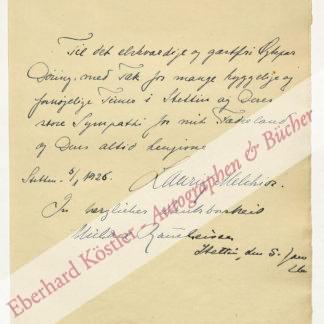 Til det elskværdige og gæstfri Ægtepar
Düring, med Tak for mange hyggelige og
fornøjelige Timer i Stettin og Deres
store Sympathi for mit Fædreland
og Deres altid hengivne
Stettin 5/1 1926. Lauritz Melchior.
In herzlicher Dankbarkeit
Stettin, den 5. Jan
Eberhard Köstler Autographen & Bücher